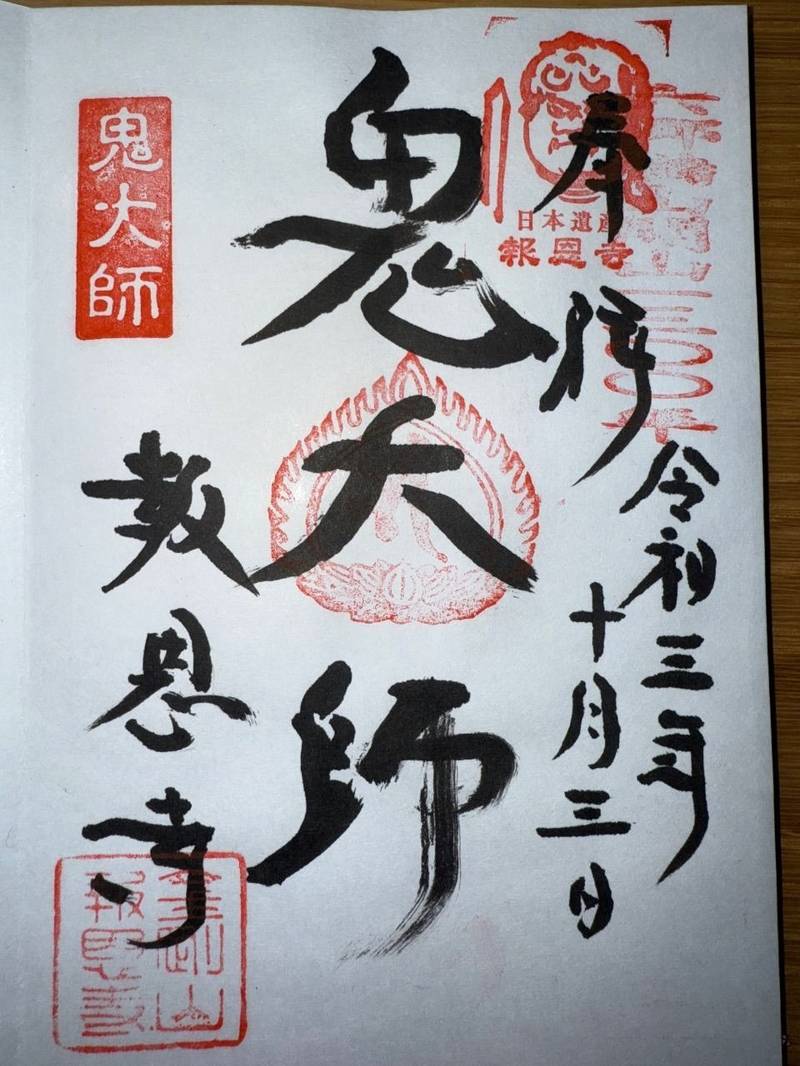 奉拝
令和三年
十月三日
日本遺産
報恩寺
鬼大師
鬼大師
報恩寺
金剛山
報恩寺